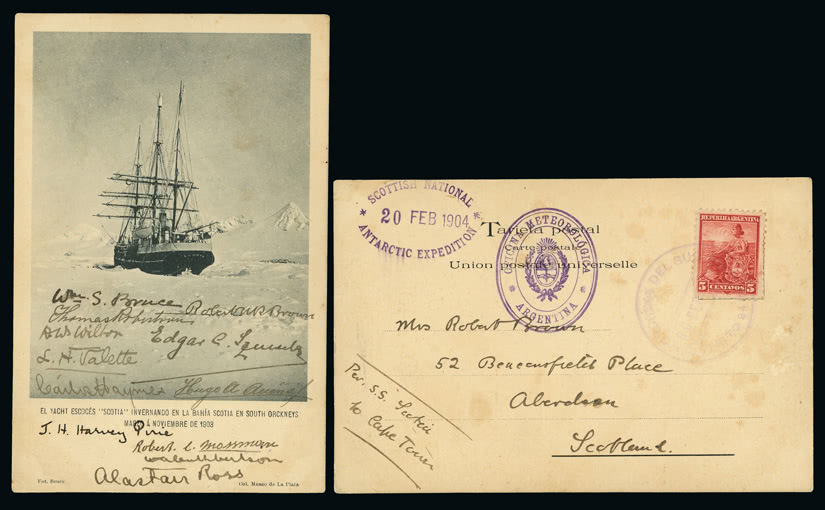 Wm S. Bruce
Robert N R Brown
Thomas Robertson
D W Wilton
Edgar C.
L. H. Valette
Hugo A.
EL YACHT ESCOCÉS "SCOTIA" INVERNANDO EN LA BAHÍA SCOTIA EN SOUTH ORCKNEYS
MARZO Á NOVIEMBRE DE 1903
J. H. Harvey Pirie
Robert C. Mossman
Alastair Ross
Fot. Bruce
Col. Museo de La Plata
* SCOTTISH NATIONAL *
20 FEB 1904
ANTARCTIC EXPEDITION
OFICINA METEOROLÓGICA
* ARGENTINA *
Tarjeta postal
Carte postale
Union postale universelle
REPUBLICA ARGENTINA
5 CENTAVOS 5
DEL SU
Mrs Robert Brown
52 Beaconsfield Place
Aberdeen
Scotland.
Per S.S. Scotia
to Cape Town